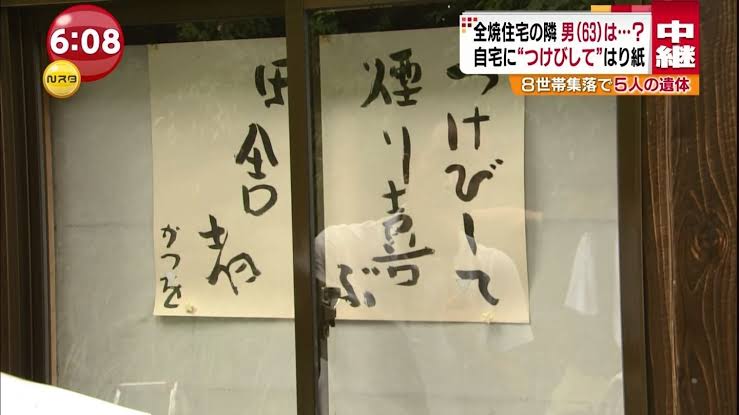 6:08
Nスタ
全焼住宅の隣 男(63)は…?
自宅に“つけびして”はり紙
中継
8世帯集落で5人の遺体
つけびして
煙り喜ぶ
田舎者
かつを